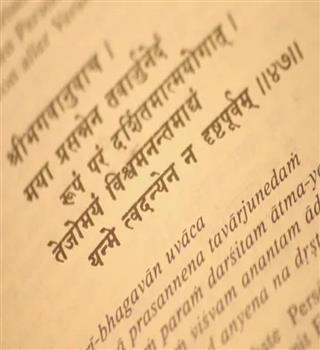 aller
श्रीभगवानुवाच ।
मया प्रसन्नेन तवार्जुनेदं
रूपं परं दर्शितमात्मयोगात् ।
तेजोमयं विश्वमनन्तमाद्यं
यन्मे त्वदन्येन न दृष्टपूर्वम् ॥४७॥
ī-bhagavān uvāca
ā prasannena tavārjunedaṁ
paraṁ darśitam ātma-yo
viśvam anantam ād
anyena na dṛṣṭ